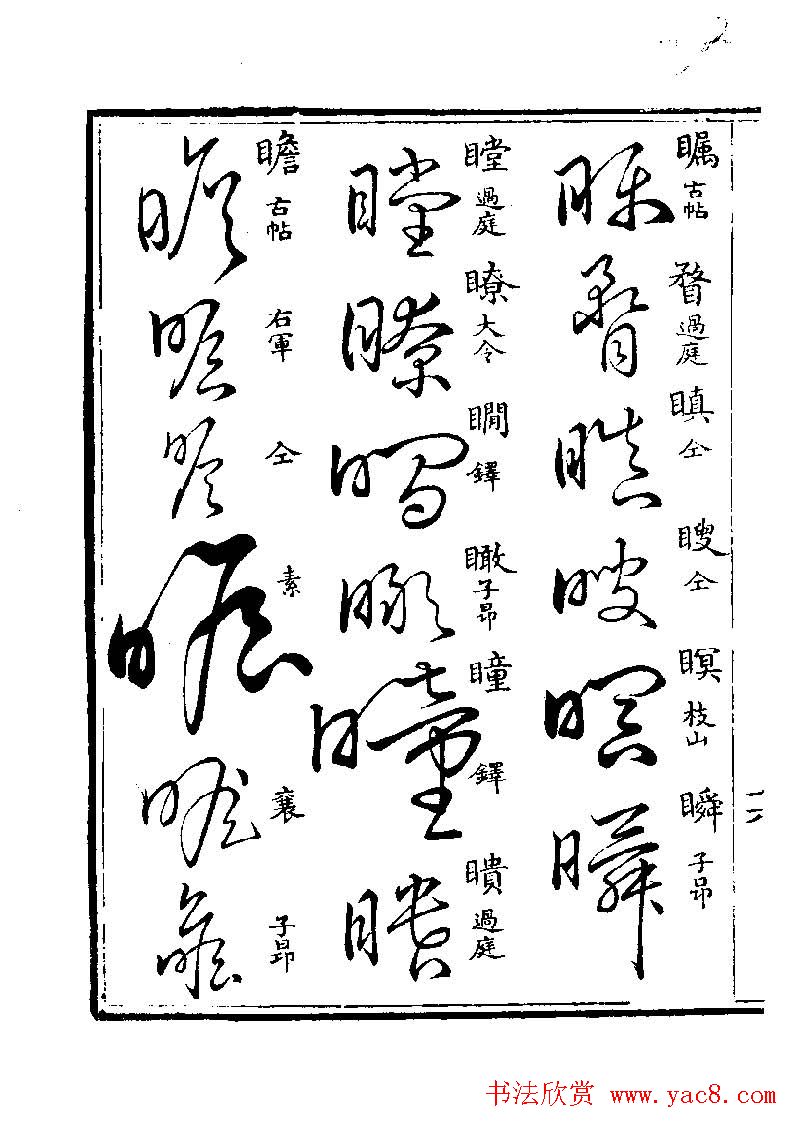 瞩 古帖
瞀 過庭
瞋 仝
瞍 仝
瞑 枝山
瞬 子昂
瞠 過庭
瞭 大令
瞯 鐸
瞰 子昂
瞳 鐸
瞶 過庭
瞻 古帖
右軍
仝
素
襄
子昂
书法欣赏 www.yac8.com